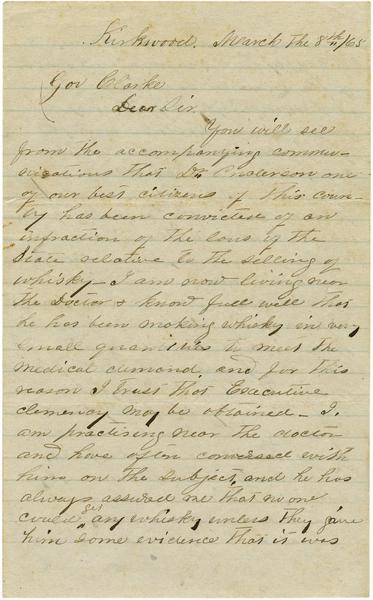 Kirkwood. March the 8th/65
Gov Clarke
Dear Sir
You will see
from the accompanying commu-
nications that Dr. Anderson one
of our best citizens of this coun-
ty has been convicted of an
infraction of the laws of the
State relative to the selling of
whisky— I am now living near
the Doctor & know full well that
he has been making whisky in very
small quantities to meet the
medical demand, and for this
reason I trust that Executive
clemency may be obtained— I.
am practising near the doctor
and have often conversed with
him on the subject, and he has
always assured me that no one
could get any whisky unless they gave
him some evidence that it was